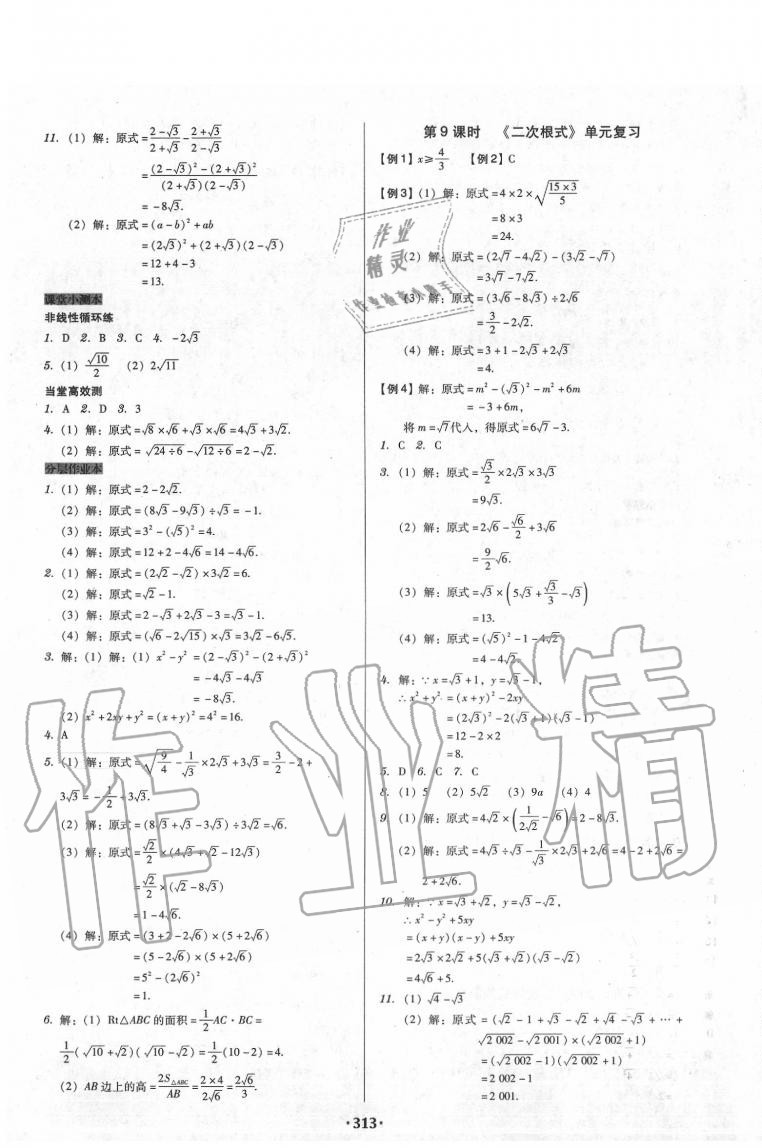 11. (1) 解：原式=(2-√3)/(2+√3)-(2+√3)/(2-√3)
=((2-√3)²-(2+√3)²)/((2+√3)(2-√3))
=-8√3.
(2) 解：原式=(a-b)²+ab
=(2√3)²+(2+√3)(2-√3)
=12+4-3
=13.
课堂小测本
非线性循环练
1. D 2. B 3. C 4. -2√3
5. (1) √10/2 (2) 2√11
当堂高效测
1. A 2. D 3. 3
4. (1) 解：原式=√8×√6+√3×√6=4√3+3√2.
(2) 解：原式=√(24÷6)-√(12÷6)=2-√2.
分层作业本
1. (1) 解：原式=2-2√2.
(2) 解：原式=(8√3-9√3)÷√3=-1.
(3) 解：原式=3²-(√5)²=4.
(4) 解：原式=12+2-4√6=14-4√6.
2. (1) 解：原式=(2√2-√2)×3√2=6.
(2) 解：原式=√2-1.
(3) 解：原式=2-√3+2√3-3=√3-1.
(4) 解：原式=(√6-2√15)×√3=3√2-6√5.
3. 解：(1) 解：(1) x²-y²=(2-√3)²-(2+√3)²
=-4√3-4√3
=-8√3.
(2) x²+2xy+y²=(x+y)²=4²=16.
4. A
5. (1) 解：原式=√(9/4)-1/√3×2√3+3√3=3/2-2+
3√3=-1/2+3√3.
(2) 解：原式=(8√3+√3-3√3)÷3√2=√6.
(3) 解：原式=√2/2×(4√3+√2-12√3)
=√2/2×(√2-8√3)
=1-4√6.
(4) 解：原式=(3+2-2√6)×(5+2√6)
=(5-2√6)×(5+2√6)
=5²-(2√6)²
=1.
6. 解：(1) Rt△ABC的面积=1/2AC·BC=
1/2(√10+√2)(√10-√2)=1/2(10-2)=4.
(2) AB边上的高=2S△ABC/AB=2×4/2√6=2√6/3.
第9课时 《二次根式》单元复习
【例1】x≥4/3 【例2】C
【例3】(1) 解：原式=4×2×√(15×3/5)
=8×3
=24.
(2) 解：原式=(2√7-4√2)-(3√2-√7)
=3√7-7√2.
(3) 解：原式=(3√6-8√3)÷2√6
=3/2-2√2.
(4) 解：原式=3+1-2√3+2√3
=4.
【例4】解：原式=m²-(√3)²-m²+6m
=-3+6m,
将m=√7代人，得原式=6√7-3.
1. C 2. C
3. (1) 解：原式=√3/2×2√3×3√3
=9√3.
(2) 解：原式=2√6-√6/2+3√6
=9/2√6.
(3) 解：原式=√3×(5√3+√3/3-√3)
=13.
(4) 解：原式=(√5)²-1-4√2
=4-4√2.
4. 解：∵x=√3+1, y=√3-1,
∴x²+y²=(x+y)²-2xy
=(2√3)²-2(√3+1)(√3-1)
=12-2×2
=8.
5. D 6. C 7. C
8. (1) 5 (2) 5√2 (3) 9a (4) 4
9. (1) 解：原式=4√2×(1/2√2-√6)=2-8√3.
(2) 解：原式=4√3÷√3-1/√3×2√3+2√6=4-2+2√6=
2+2√6.
10. 解：∵x=√3+√2, y=√3-√2,
∴x²-y²+5xy
=(x+y)(x-y)+5xy
=2√3×2√2+5(√3+√2)(√3-√2)
=4√6+5.
11. (1) √4-√3
(2) 解：原式=(√2-1+√3-√2+√4-√3+…+
√2 002-√2 001)×(√2 002+1)
=(√2 002-1)(√2 002+1)
=2 002-1
=2 001.
·313·
作业
精灵
作业精